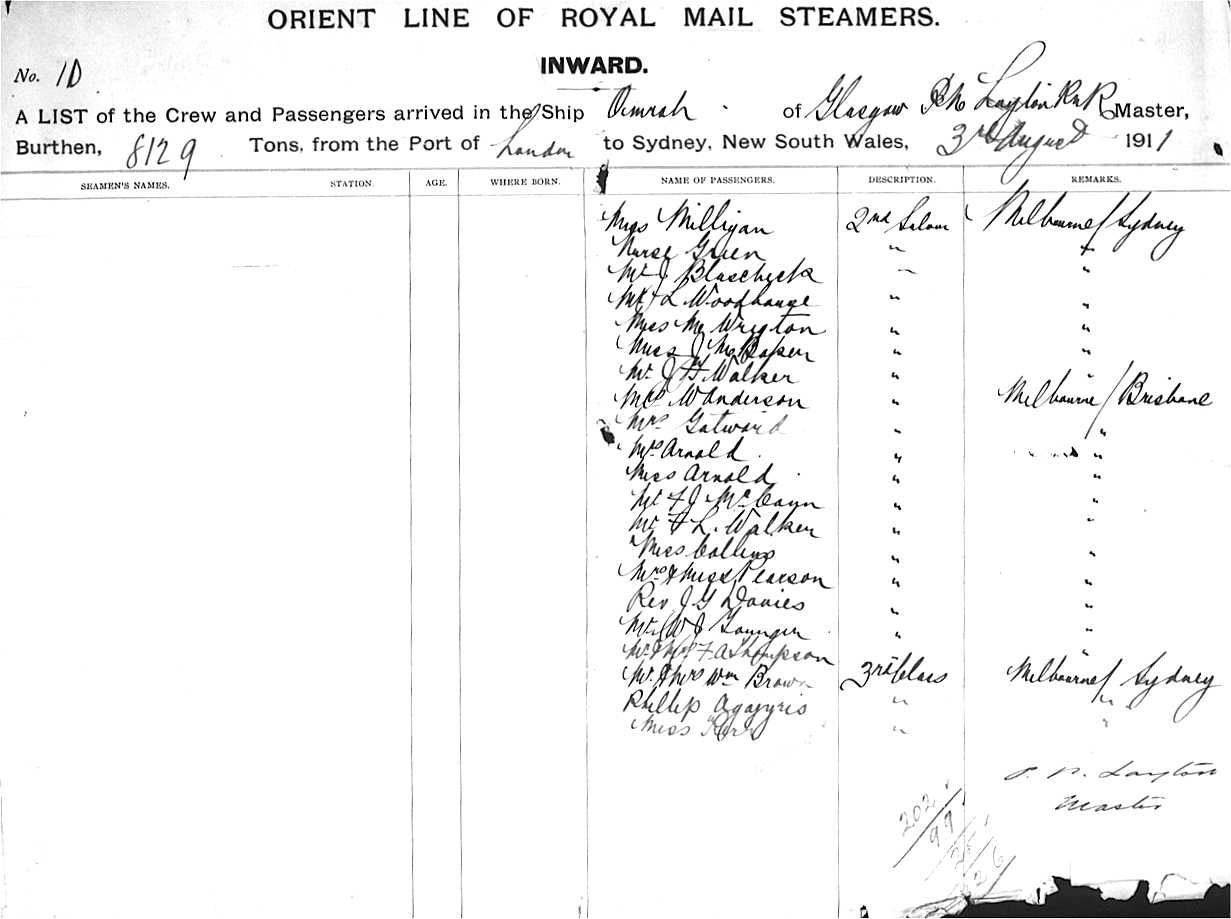 ORIENT LINE OF ROYAL MAIL STEAMERS.
INWARD.
No. 1D
A LIST of the Crew and Passengers arrived in the Ship Omrah of Glasgow Layton RNR Master,
Burthen, 8129 Tons, from the Port of London to Sydney, New South Wales, 3rd August 1911
SEAMEN'S NAMES. STATION. AGE. WHERE BORN. NAME OF PASSENGERS. DESCRIPTION. REMARKS.
Miss Milligan 2nd Saloon Melbourne / Sydney
Nurse Green " "
Mr J Blascheck " "
L Woodhouse " "
Miss Wrigton " "
Miss J Mc Baker " "
Mr J F Walker " "
W Anderson " Melbourne / Brisbane
Mrs Gatward " "
Mrs Arnold " "
Miss Arnold " "
Mr F J McCann " "
Mr F L. Walker " "
Miss Collins " "
Mrs & Miss Pearson " "
Rev J G Davies " "
Mr W J Younger " "
Mr & Mrs F A Thompson "
Mr & Mrs Wm Brown 3rd Class Melbourne / Sydney
Phillip Agapyris " "
Miss Kerr " "
Layton
Master
202
99
26